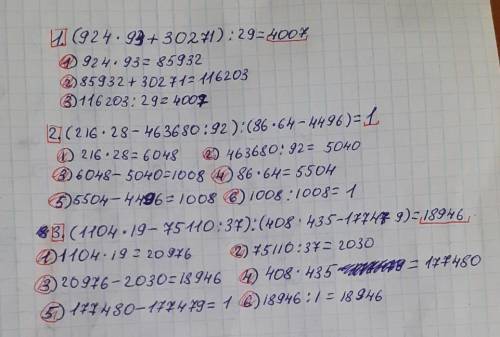 1. (924·93+30271):29=4007
1) 924·93=85932
2) 85932+30271=116203
3) 116203:29=4007
2. (216·28-463680:92):(86·64-4496)=1
1) 216·28=6048 2) 463680:92= 5040
3) 6048-5040=1008 4) 86·64=5504
5) 5504-4496=1008 6) 1008:1008=1
3. (1104·19-75110:37):(408·435-17747 9)=18946
1) 1104·19=20976 2) 75110:37=2030
3) 20976-2030=18946 4) 408·435 = 177480
5) 177480-177479=1 6) 18946:1=18946